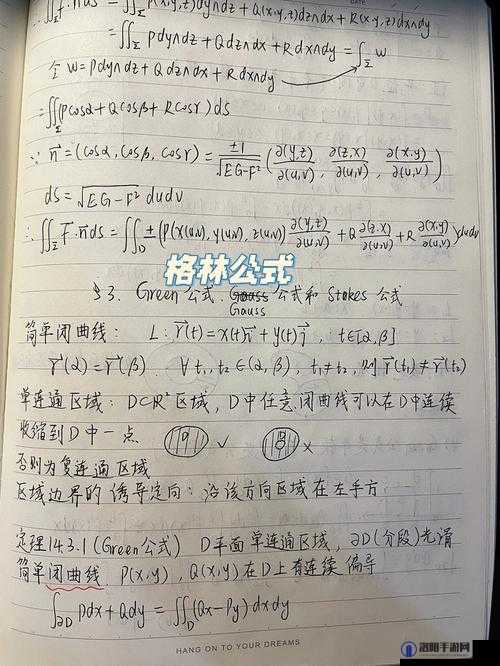 ∬_Σ F⃗·n⃗ dS = ∬_Σ P(x,y,z)dy∧dz + Q(x,y,z)dz∧dx + R(x,y,z)dx∧dy
DATE
= ∬_Σ Pdy∧dz + Qdz∧dx + Rdx∧dy = ∫_Σ W
令 W = Pdy∧dz + Qdz∧dx + Rdx∧dy
= ∬_Σ (Pcosα + Qcosβ + Rcosγ) dS
∵ n⃗ = (cosα, cosβ, cosγ) = ±1/√(EG-F²) (∂(y,z)/∂(u,v), ∂(z,x)/∂(u,v), ∂(x,y)/∂(u,v))
dS = √(EG-F²) dudv
∴ ∬_Σ F⃗·n⃗ dS = ∬_D ± (P(x(u,v), y(u,v), z(u,v)) ∂(y,z)/∂(u,v) + Q ∂(z,x)/∂(u,v) + R ∂(x,y)/∂(u,v)) dudv
格林公式
§3. Green 公式、Gauss 公式和 Stokes 公式
简单闭曲线: L: r⃗(t) = x(t)i⃗ + y(t)j⃗, t∈[α,β]
r⃗(α) = r⃗(β). ∀ t₁,t₂∈(α,β), t₁≠t₂, 则 r⃗(t₁)≠r⃗(t₂)
单连通区域: D⊂R² 区域, D中任意闭曲线可以在D中连续
收缩到D中一点 ✓ ×
否则为复连通区域
区域边界的诱导定向: 沿该方向区域在左手方
定理14.3.1 (Green公式) D平面单连通区域, ∂D(分段)光滑
简单闭曲线 P(x,y), Q(x,y)在D上有连续偏导
∫_∂D Pdx+Qdy = ∬_D (Qx-Py)dxdy
HANG ON TO YOUR DREAMS
洛阳手游网